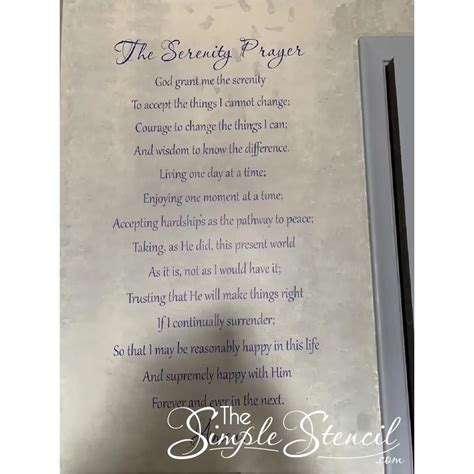 The Serenity Prayer
God grant me the serenity
To accept the things I cannot change;
Courage to change the things I can;
And wisdom to know the difference.
Living one day at a time;
Enjoying one moment at a time;
Accepting hardships as the pathway to peace;
Taking, as He did, this present world
As it is, not as I would have it;
Trusting that He will make things right
If I continually surrender;
So that I may be reasonably happy in this life
And supremely happy with Him
Forever and ever in the next.
The
Simple Stencil
.com